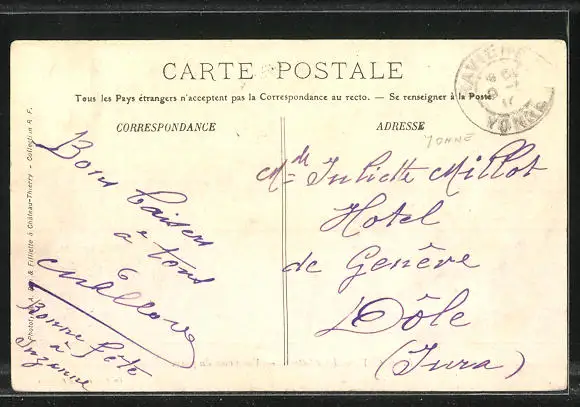 CARTE POSTALE
Tous les Pays étrangers n'acceptent pas la Correspondance au recto. — Se renseigner à la Poste
CORRESPONDANCE
ADRESSE
YONNE
YONNE
Bons baisers
à tous
Bonne fête
à
Suzanne
Mde Juliette Millot
Hotel
de Genève
Dôle
(Jura)
& Filliette à Château-Thierry - Collection R. F.